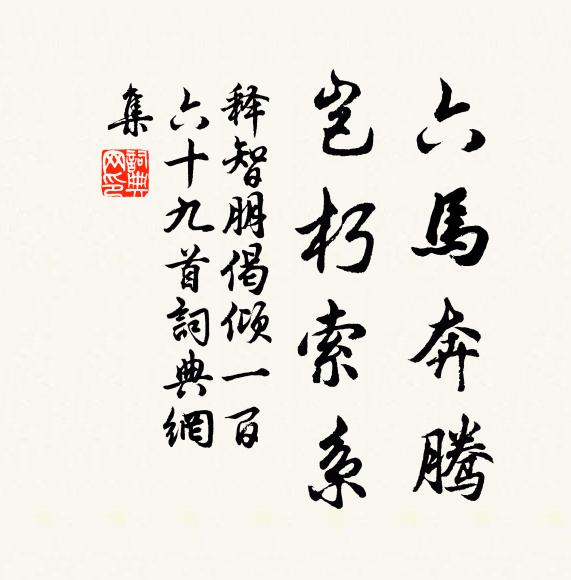 六馬奔騰
豈朽索系
释智朋偈傾一百
六十九首詞典網
集
詞典网印